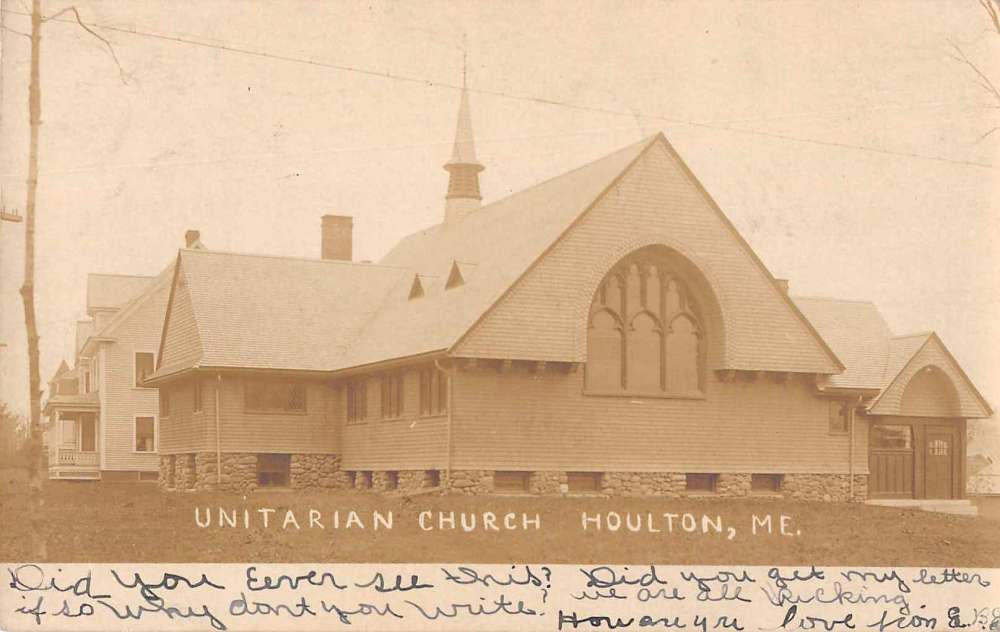 UNITARIAN CHURCH HOULTON, ME.
Did you Eever see this? Did you get my letter
if so Why dont you Write? we are all Kicking
How are yu love from E.